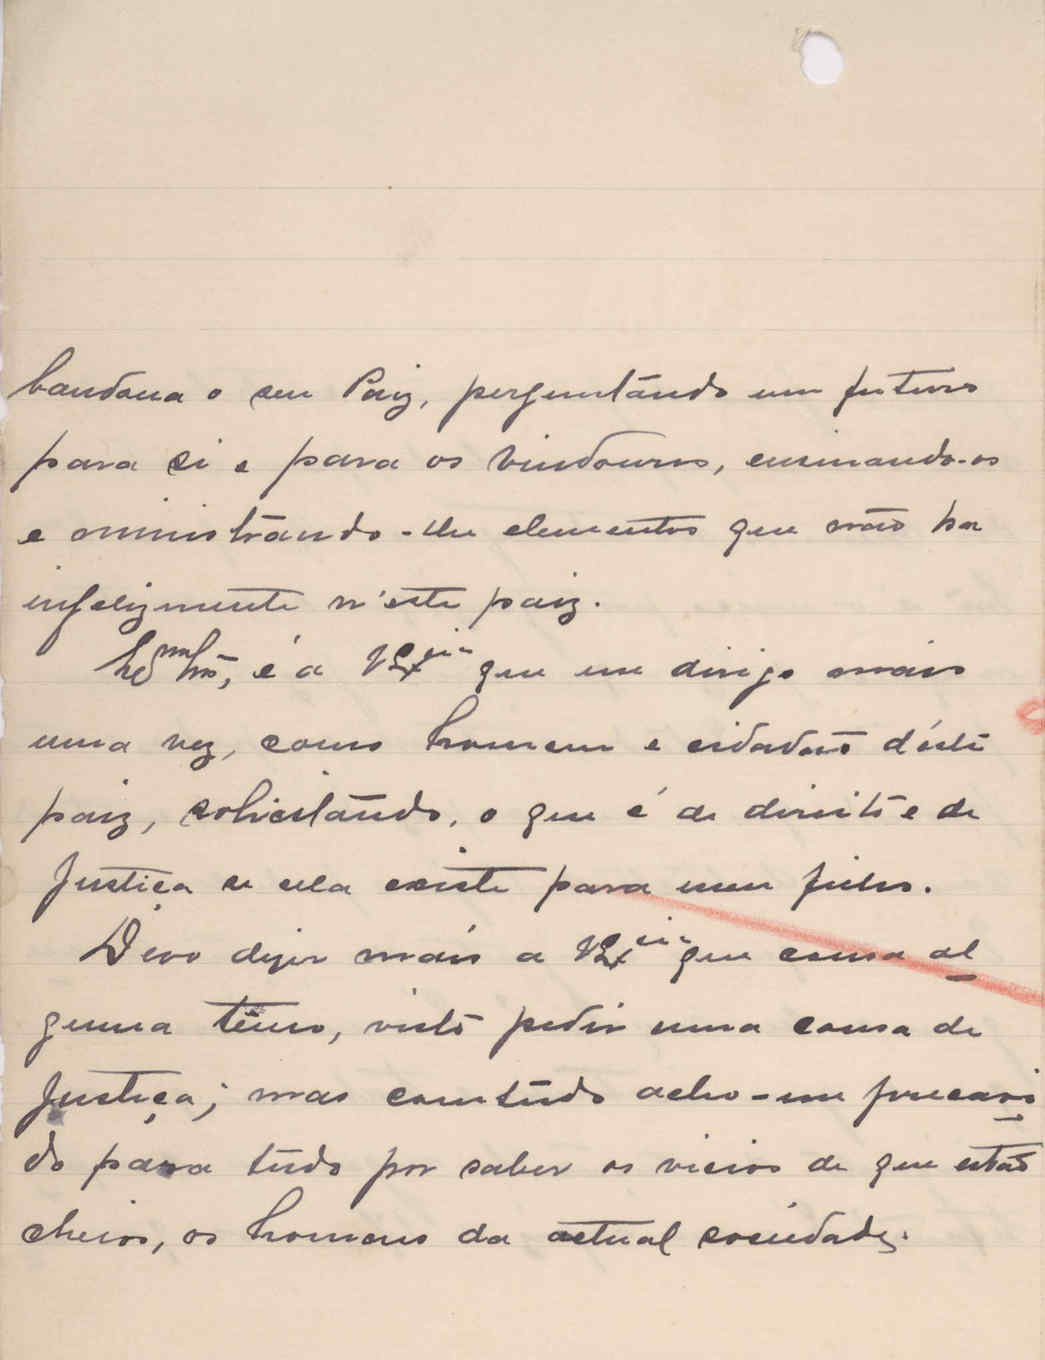 bandona o seu Paiz, perguntándo um futuro
para si e para os vindouros, ensinando-os
e ministrándo-lhe elementos que não ha
infelizmente n'este paiz.
é a V Ex^cia que me dirijo mais
uma vez, como homem e cidadão d'éste
paiz, solicitándo, o que é de direito e de
Justiça se ela existe para meu filho.
Devo dizer mais a V Ex^cia que cousa al
guma têmo, visto pedir uma cousa de
Justiça; mas comtúdo acho-me precavi
do para túdo por saber os vicios de que estão
cheios, os homens da actual sociedade.